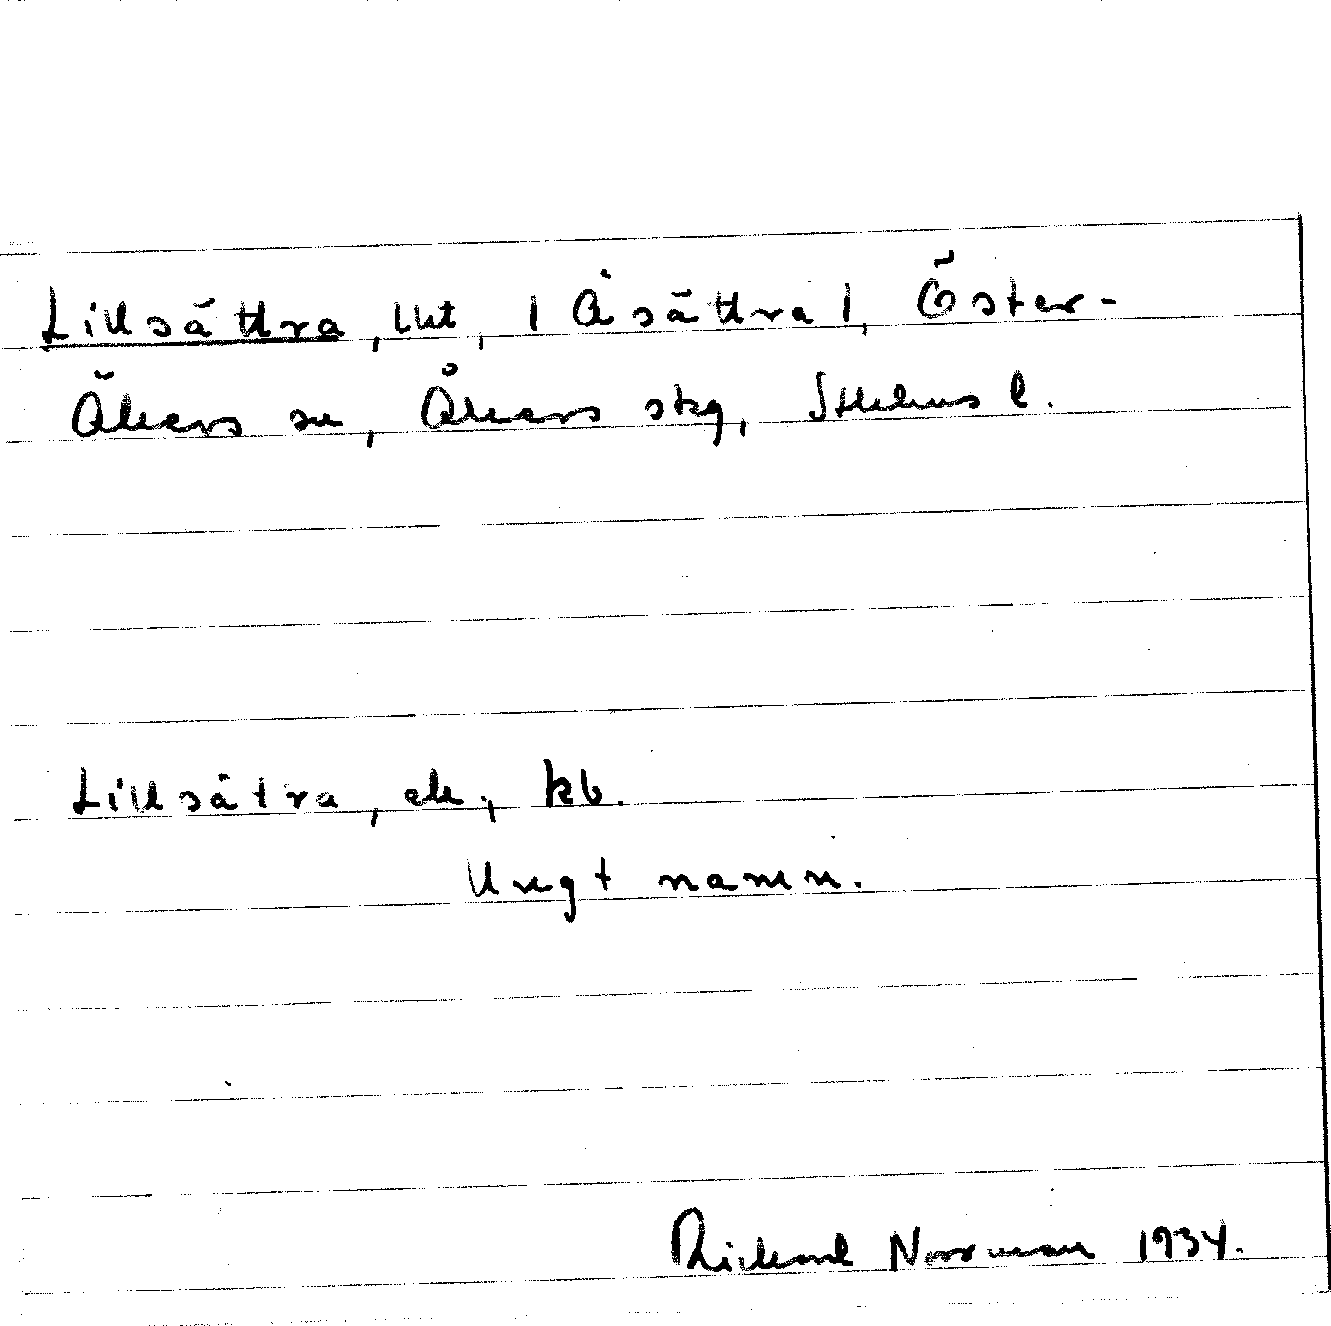 Lillsättra, lht, | Åsättra |, Öster-
Åkers sn, Åkers skg, Sthlms l.
Lillsätra, ek., kb.
Ungt namn.
Rickard Norrman 1934.